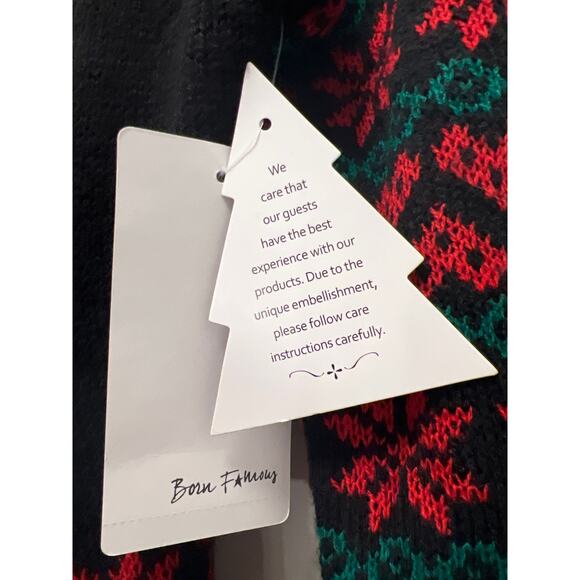 We
care that
our guests
have the best
experience with our
products. Due to the
unique embellishment,
please follow care
instructions carefully.
Born F★mous